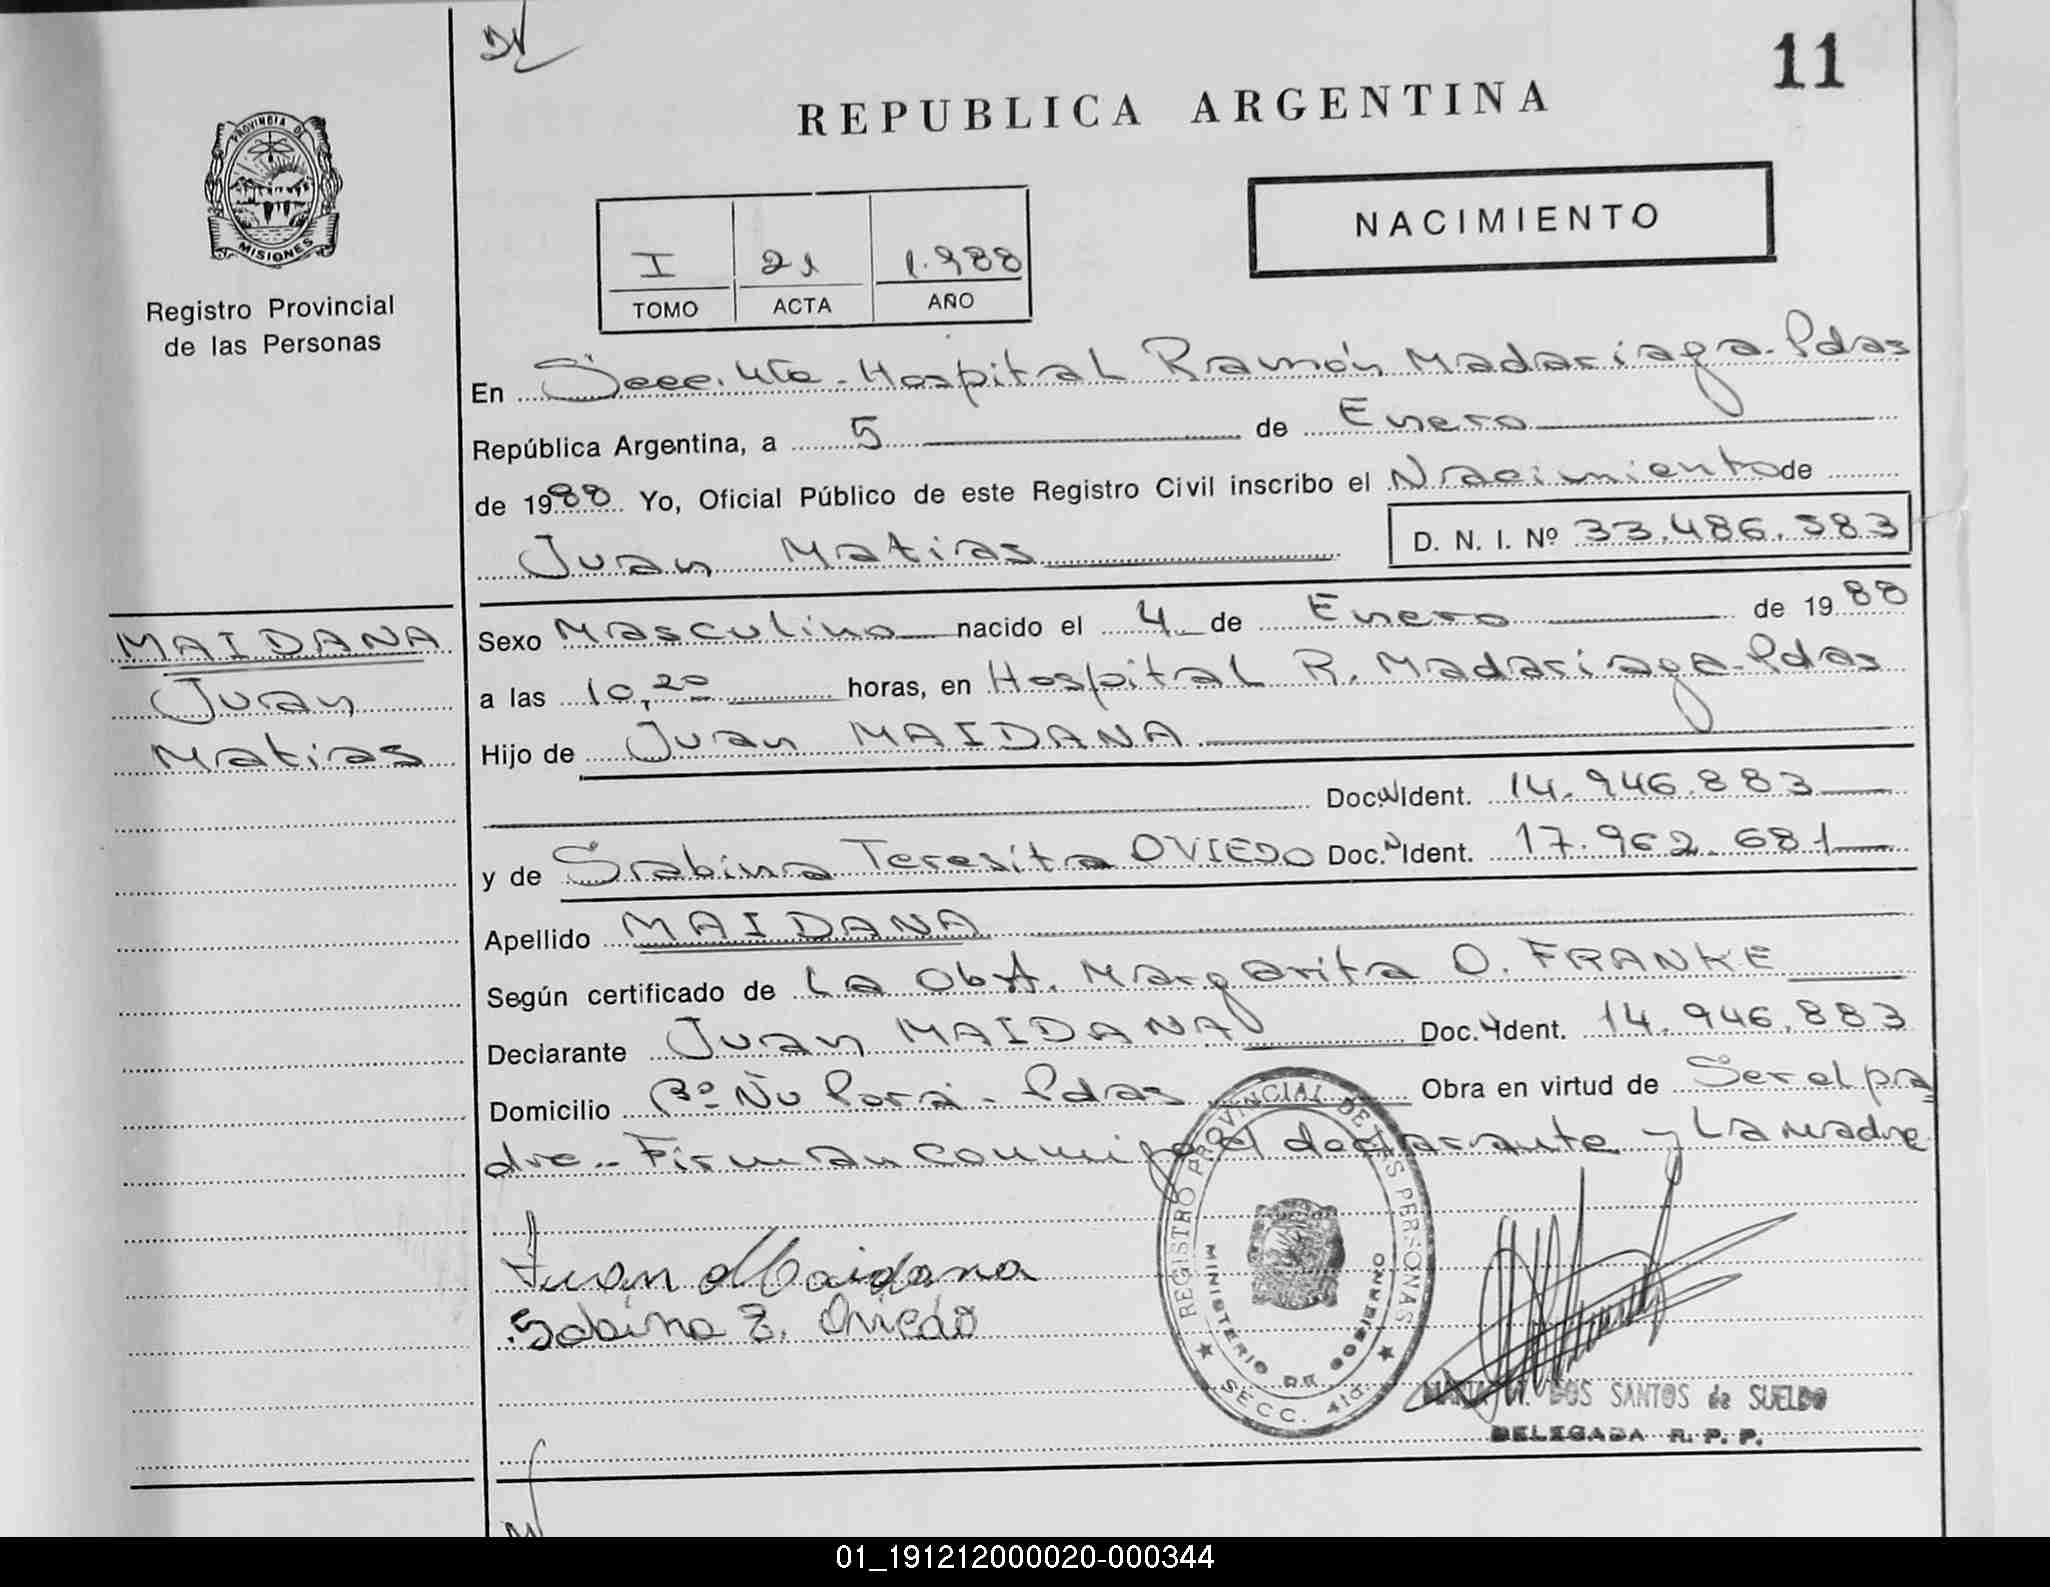 11
REPUBLICA ARGENTINA
PROVINCIA DE
MISIONES
Registro Provincial
de las Personas
NACIMIENTO
I 21 1.988
TOMO ACTA AÑO
En Secc. 4ta - Hospital Ramón Madariaga - Pdas
República Argentina, a 5 de Enero
de 1988 Yo, Oficial Público de este Registro Civil inscribo el Nacimiento de
Juan Matias D. N. I. Nº 33.486.583
MAIDANA
Juan
Matias
Sexo Masculino nacido el 4 de Enero de 1988
a las 10,20 horas, en Hospital R. Madariaga - Pdas
Hijo de Juan MAIDANA
Doc. Ident. 14.946.883
y de Sabina Teresita OVIEDO Doc. Ident. 17.962.681
Apellido MAIDANA
Según certificado de La Obst. Margarita O. FRANKE
Declarante Juan MAIDANA Doc. Ident. 14.946.883
Domicilio Bº Ñu Porá - Pdas Obra en virtud de Ser el pa
dre - Firman conmigo el declarante y La madre
Juan Maidana
Sabina T. Oviedo
REGISTRO PROVINCIAL DE LAS PERSONAS
MINISTERIO DE GOBIERNO
SECC. 4ta.
DOS SANTOS de SUELDO
DELEGADA R. P. P.
01_191212000020-000344